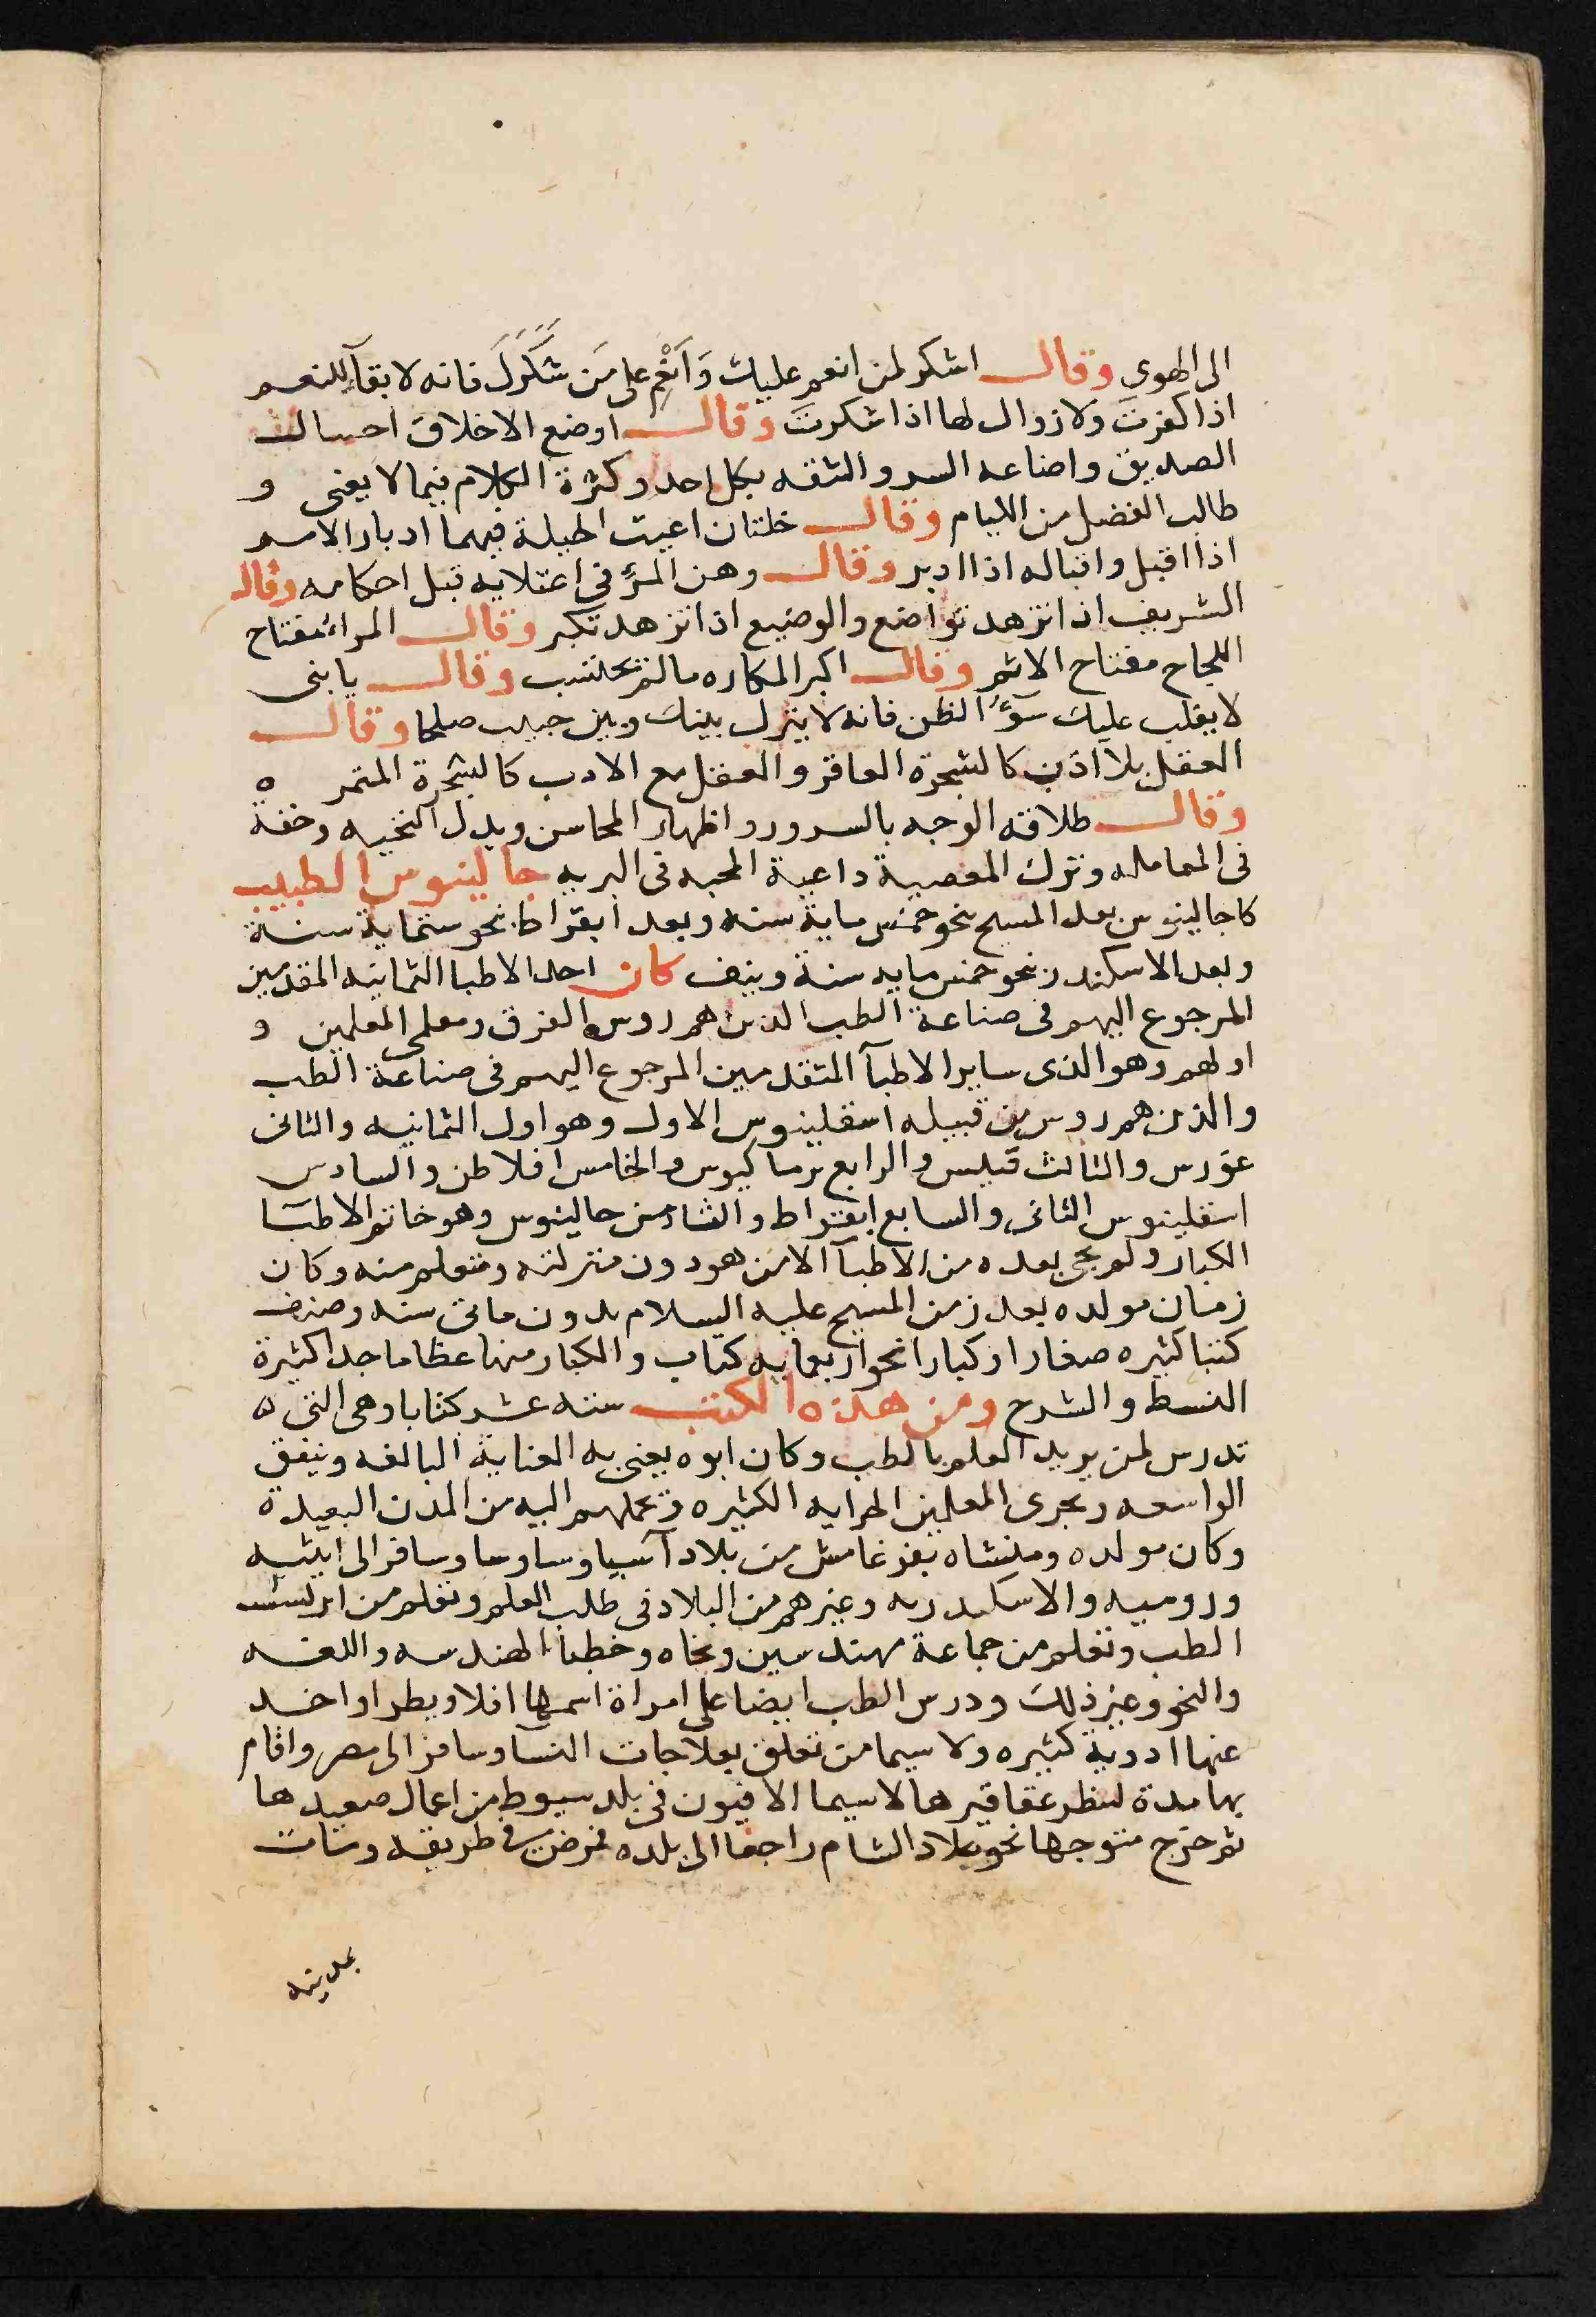 الى الهوى وقال اشكر لمن انعم عليك وَاَنْعِم على مَن شَكَرَكَ فانه لا بقآء للنعم
اذا كفرت ولا زوال لها اذا شكرت وقال اوضع الاخلاق
الصديق واضاعه السر والثقه بكل احد وكثرة الكلام فيما لا يعنى و
طالب الفضل من الليام وقال خلتان اعيت الحيلة فيهما ادبار الامر
اذا اقبل واقباله اذا ادبر وقال وهن المرء فى اعتلايه قبل احكامه وقال
الشريف اذا تزهد تواضع والوضيع اذا تزهد تكبر وقال المراء مفتاح
اللجاج مفتاح الاثم وقال اكبر المكاره ما لم تحتسب وقال يا بنى
لا يغلب عليك سوء الظن فانه لا يترك بينك وبين حبيب صلحا وقال
العقل بلا ادب كالشجرة العاقر والعقل مع الادب كالشجرة المثمر ه
وقال طلاقه الوجه بالسرور واظهار المحاسن وبدل التحيه وخفة
فى المعامله وترك المعصية داعية المحبه فى البريه جالينوس الطبيب
كا جالينوس بعد المسيح بنحو خمس ماية سنه وبعد ابقراط بنحو ستماية سنة
وبعد الاسكندر بنحو خمس مايه سنة ونيف كان احد الاطبا الثمانيه المقدمين
المرجوع اليهم فى صناعة الطب الذين هم روس الفرق ومعلمى المعلمين و
اولهم وهو الذى ساير الاطبآ المتقدمين المرجوع اليهم فى صناعة الطب
والذين هم روس من قبيله اسقلينوس الاول وهو اول الثمانيه والثانى
عورس والثالث والرابع برماكيوس والخامس افلاطن والسادس
اسقلينوس الثانى والسابع ابقراط والثامن جالينوس وهو خاتم الاطبآ
الكبار ولم يجى بعده من الاطبآ الا من هو دون منزلته ومتعلم منه وكان
زمان مولده بعد زمن المسيح عليه السلام بدون ماتى سنه وصنف
كتبا كثيره صغارا وكبارا نحو اربعمايه كتاب والكبار منها عظاما جدا كثيرة
البسط والشرح ومن هذه الكتب سته عشر كتابا وهى التى ه
تدرس لمن يريد العلم بالطب وكان ابوه يعنى به العناية البالغه وينفق
الواسعه ويجرى المعلمين الجرايه الكثيره ويحملهم اليه من المدن البعيدة
وكان مولده ومنشاه بفرغامش من بلاد آسيا وسافر الى اثينيه
وروميه والاسكندريه وغيرهم من البلاد فى طلب العلم وتعلم من
الطب وتعلم من جماعة مهندسين ونحاه وخطبا الهندسه واللغه
والنحو وغير ذلك ودرس الطب ايضا على امراة اسمها افلاوبطرا واخد
عنها ادوية كثيره ولا سيما من تعلق بعلاجات النسآ وسافر الى مصر واقام
بها مدة لينظر عقاقيرها لا سيما الافيون فى بلد سيوط من اعمال صعيدها
ثم خرج متوجها نحو بلاد الشام راجعا الى بلده فمرض فى طريقه ومات
بمدينه